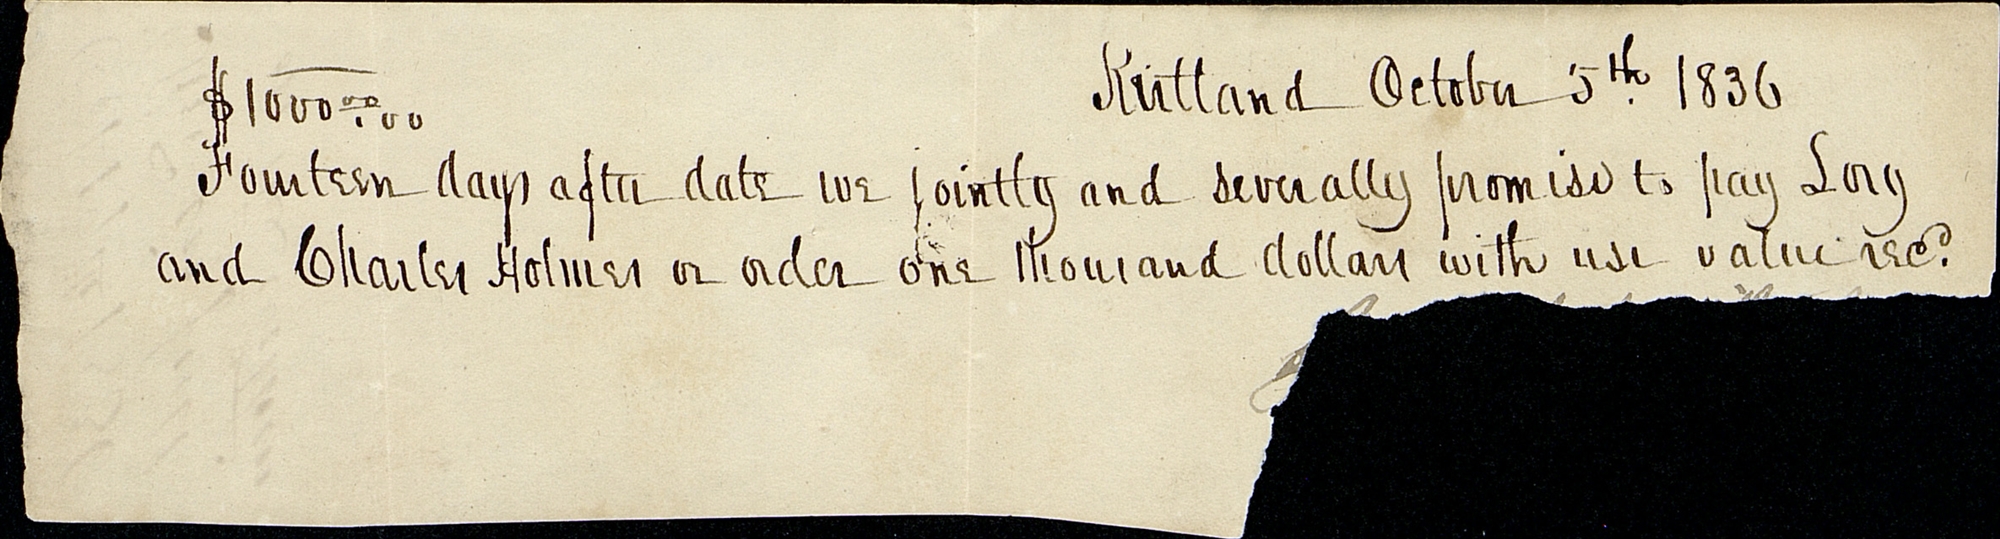 $1000.00 Kirtland October 5th. 1836
Fourteen days after date we jointly and severally promise to pay Lory
and Charles Holmes or order one thousand dollars with use value recd.